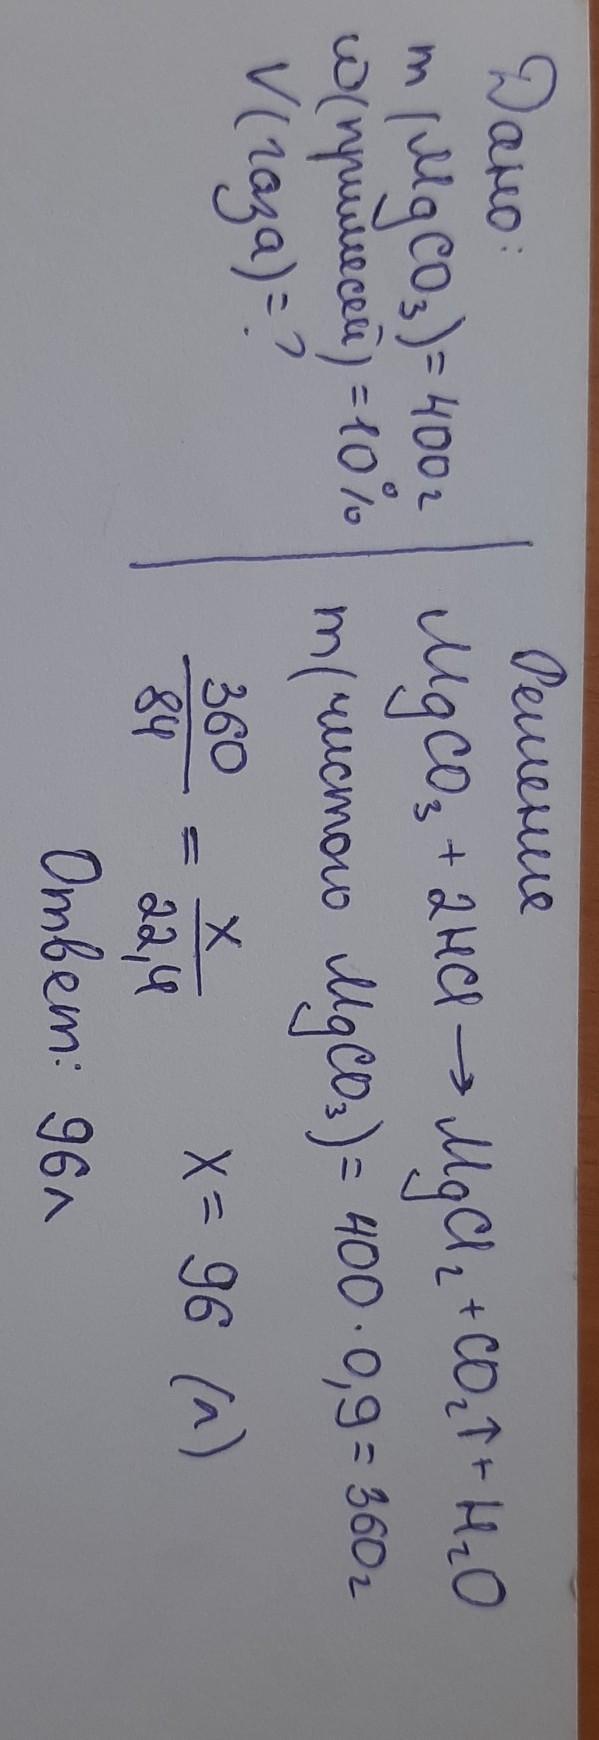 Дано:
m(MgCO₃) = 400г
ω(примесей) = 10%
V(газа) = ?
Решение
MgCO₃ + 2HCl → MgCl₂ + CO₂↑ + H₂O
m(чистого MgCO₃) = 400 · 0,9 = 360г
360/84 = x/22,4   x = 96 (л)
Ответ: 96л